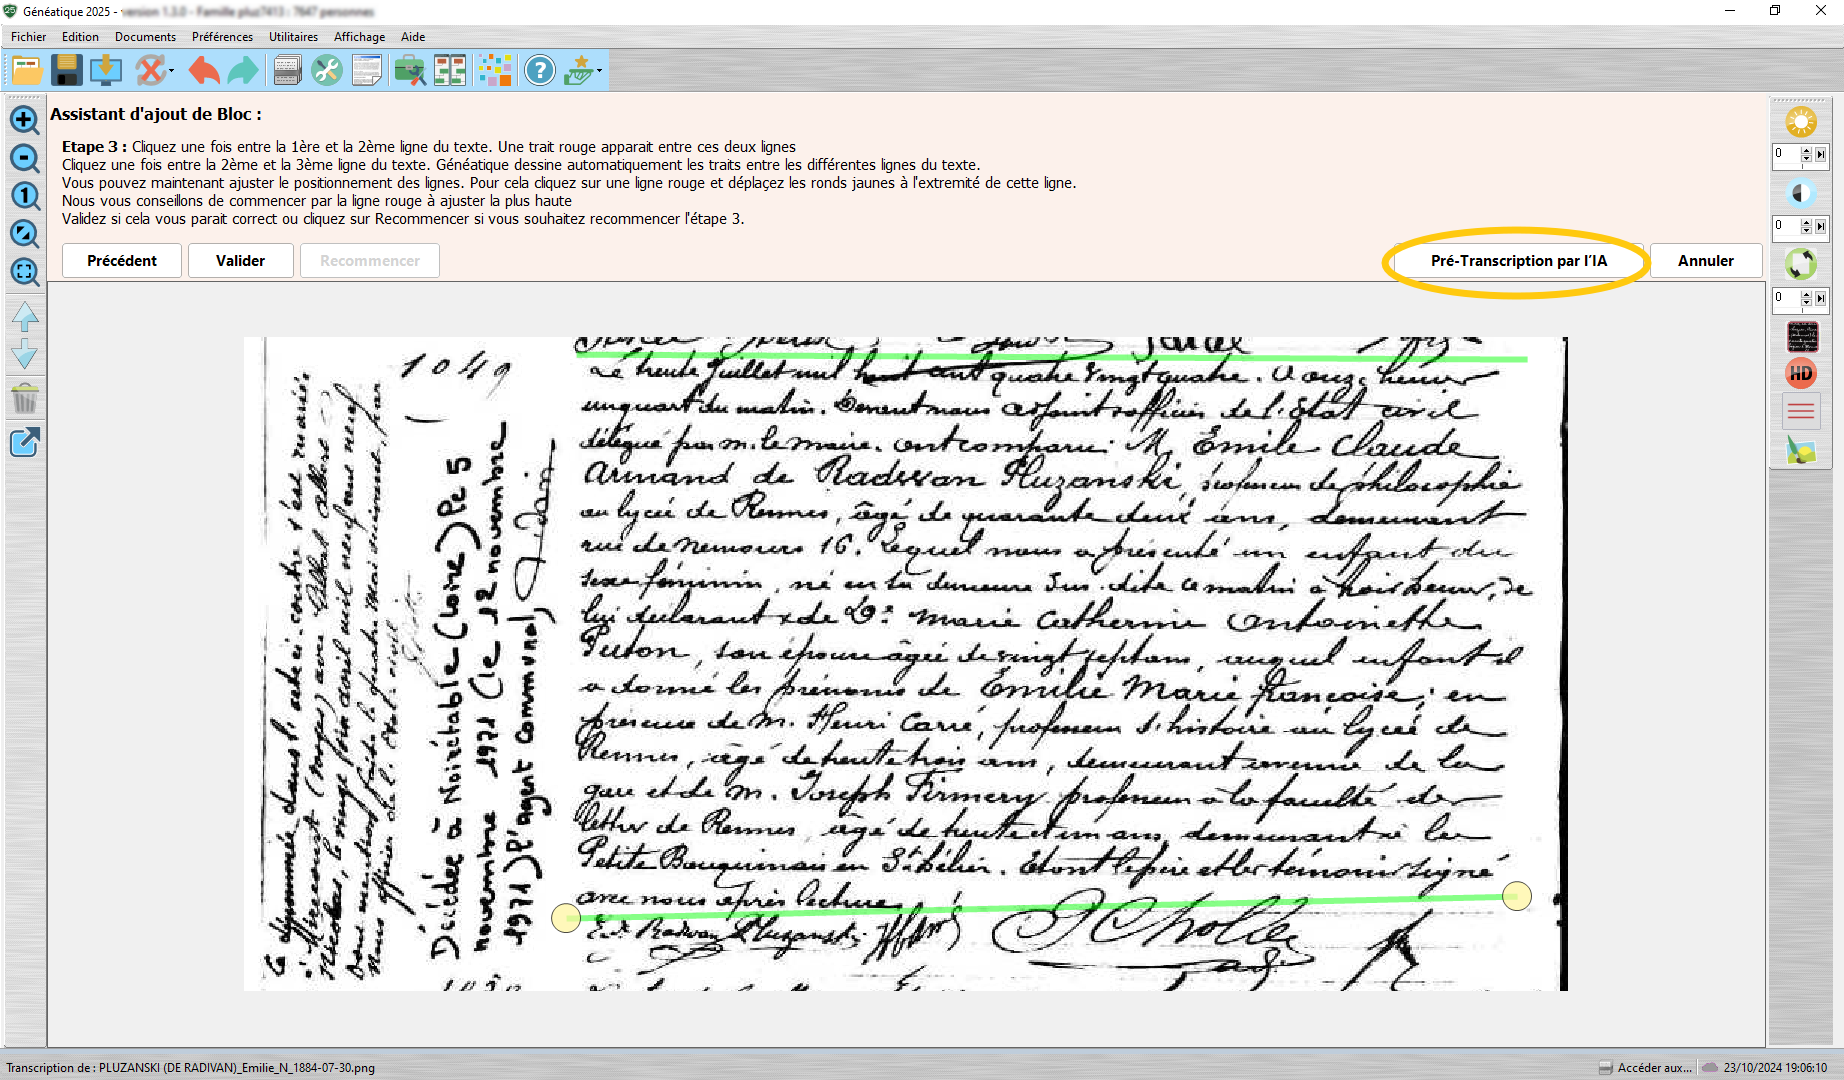 Généatique 2025 - version 1.3.0 - Famille pluz7413 : 7647 personnes
Fichier Edition Documents Préférences Utilitaires Affichage Aide
Assistant d'ajout de Bloc :
Etape 3 : Cliquez une fois entre la 1ère et la 2ème ligne du texte. Une trait rouge apparait entre ces deux lignes
Cliquez une fois entre la 2ème et la 3ème ligne du texte. Généatique dessine automatiquement les traits entre les différentes lignes du texte.
Vous pouvez maintenant ajuster le positionnement des lignes. Pour cela cliquez sur une ligne rouge et déplaçez les ronds jaunes à l'extremité de cette ligne.
Nous vous conseillons de commencer par la ligne rouge à ajuster la plus haute
Validez si cela vous parait correct ou cliquez sur Recommencer si vous souhaitez recommencer l'étape 3.
Précédent Valider Recommencer Pré-Transcription par l'IA Annuler
0
0
0
HD
1049
Le trente Juillet mil huit cent quatre vingt quatre. à onze heures
un quart du matin. Devant nous adjoint officier de l'Etat civil
délégué par m. le maire. ont comparu: M. Emile Claude
Armand de Radwan Pluzanski, professeur de philosophie
au lycée de Rennes, âgé de quarante deux ans, demeurant
rue de nemours 16. Lequel nous a présenté un enfant du
sexe féminin, né en sa demeure sus-dite ce matin à trois heures, de
lui déclarant & de De: Marie Catherine Antoinette
Puton, son épouse âgée de vingt sept ans, auquel enfant il
a donné les prénoms de Emilie Marie françoise; en
présence de m. Henri Carré, professeur d'histoire au lycée de
Rennes, âgé de trente trois ans, demeurant avenue de la
gare et de m. Joseph Firmery professeur à la faculté des
lettres de Rennes, âgé de trente et un ans, demeurant à la
Petite Bauquinais en St hélier. Et ont le père et les témoins signé
avec nous après lecture.
E. de Radwan Pluzanski
La dénommée dans l'acte ci-contre s'est mariée
Décédée à Noirétable (Loire) le 5
novembre 1971 (le 12 novembre
1971) l'agent communal,
Transcription de : PLUZANSKI (DE RADIVAN)_Emilie_N_1884-07-30.png Accéder aux... 23/10/2024 19:06:10